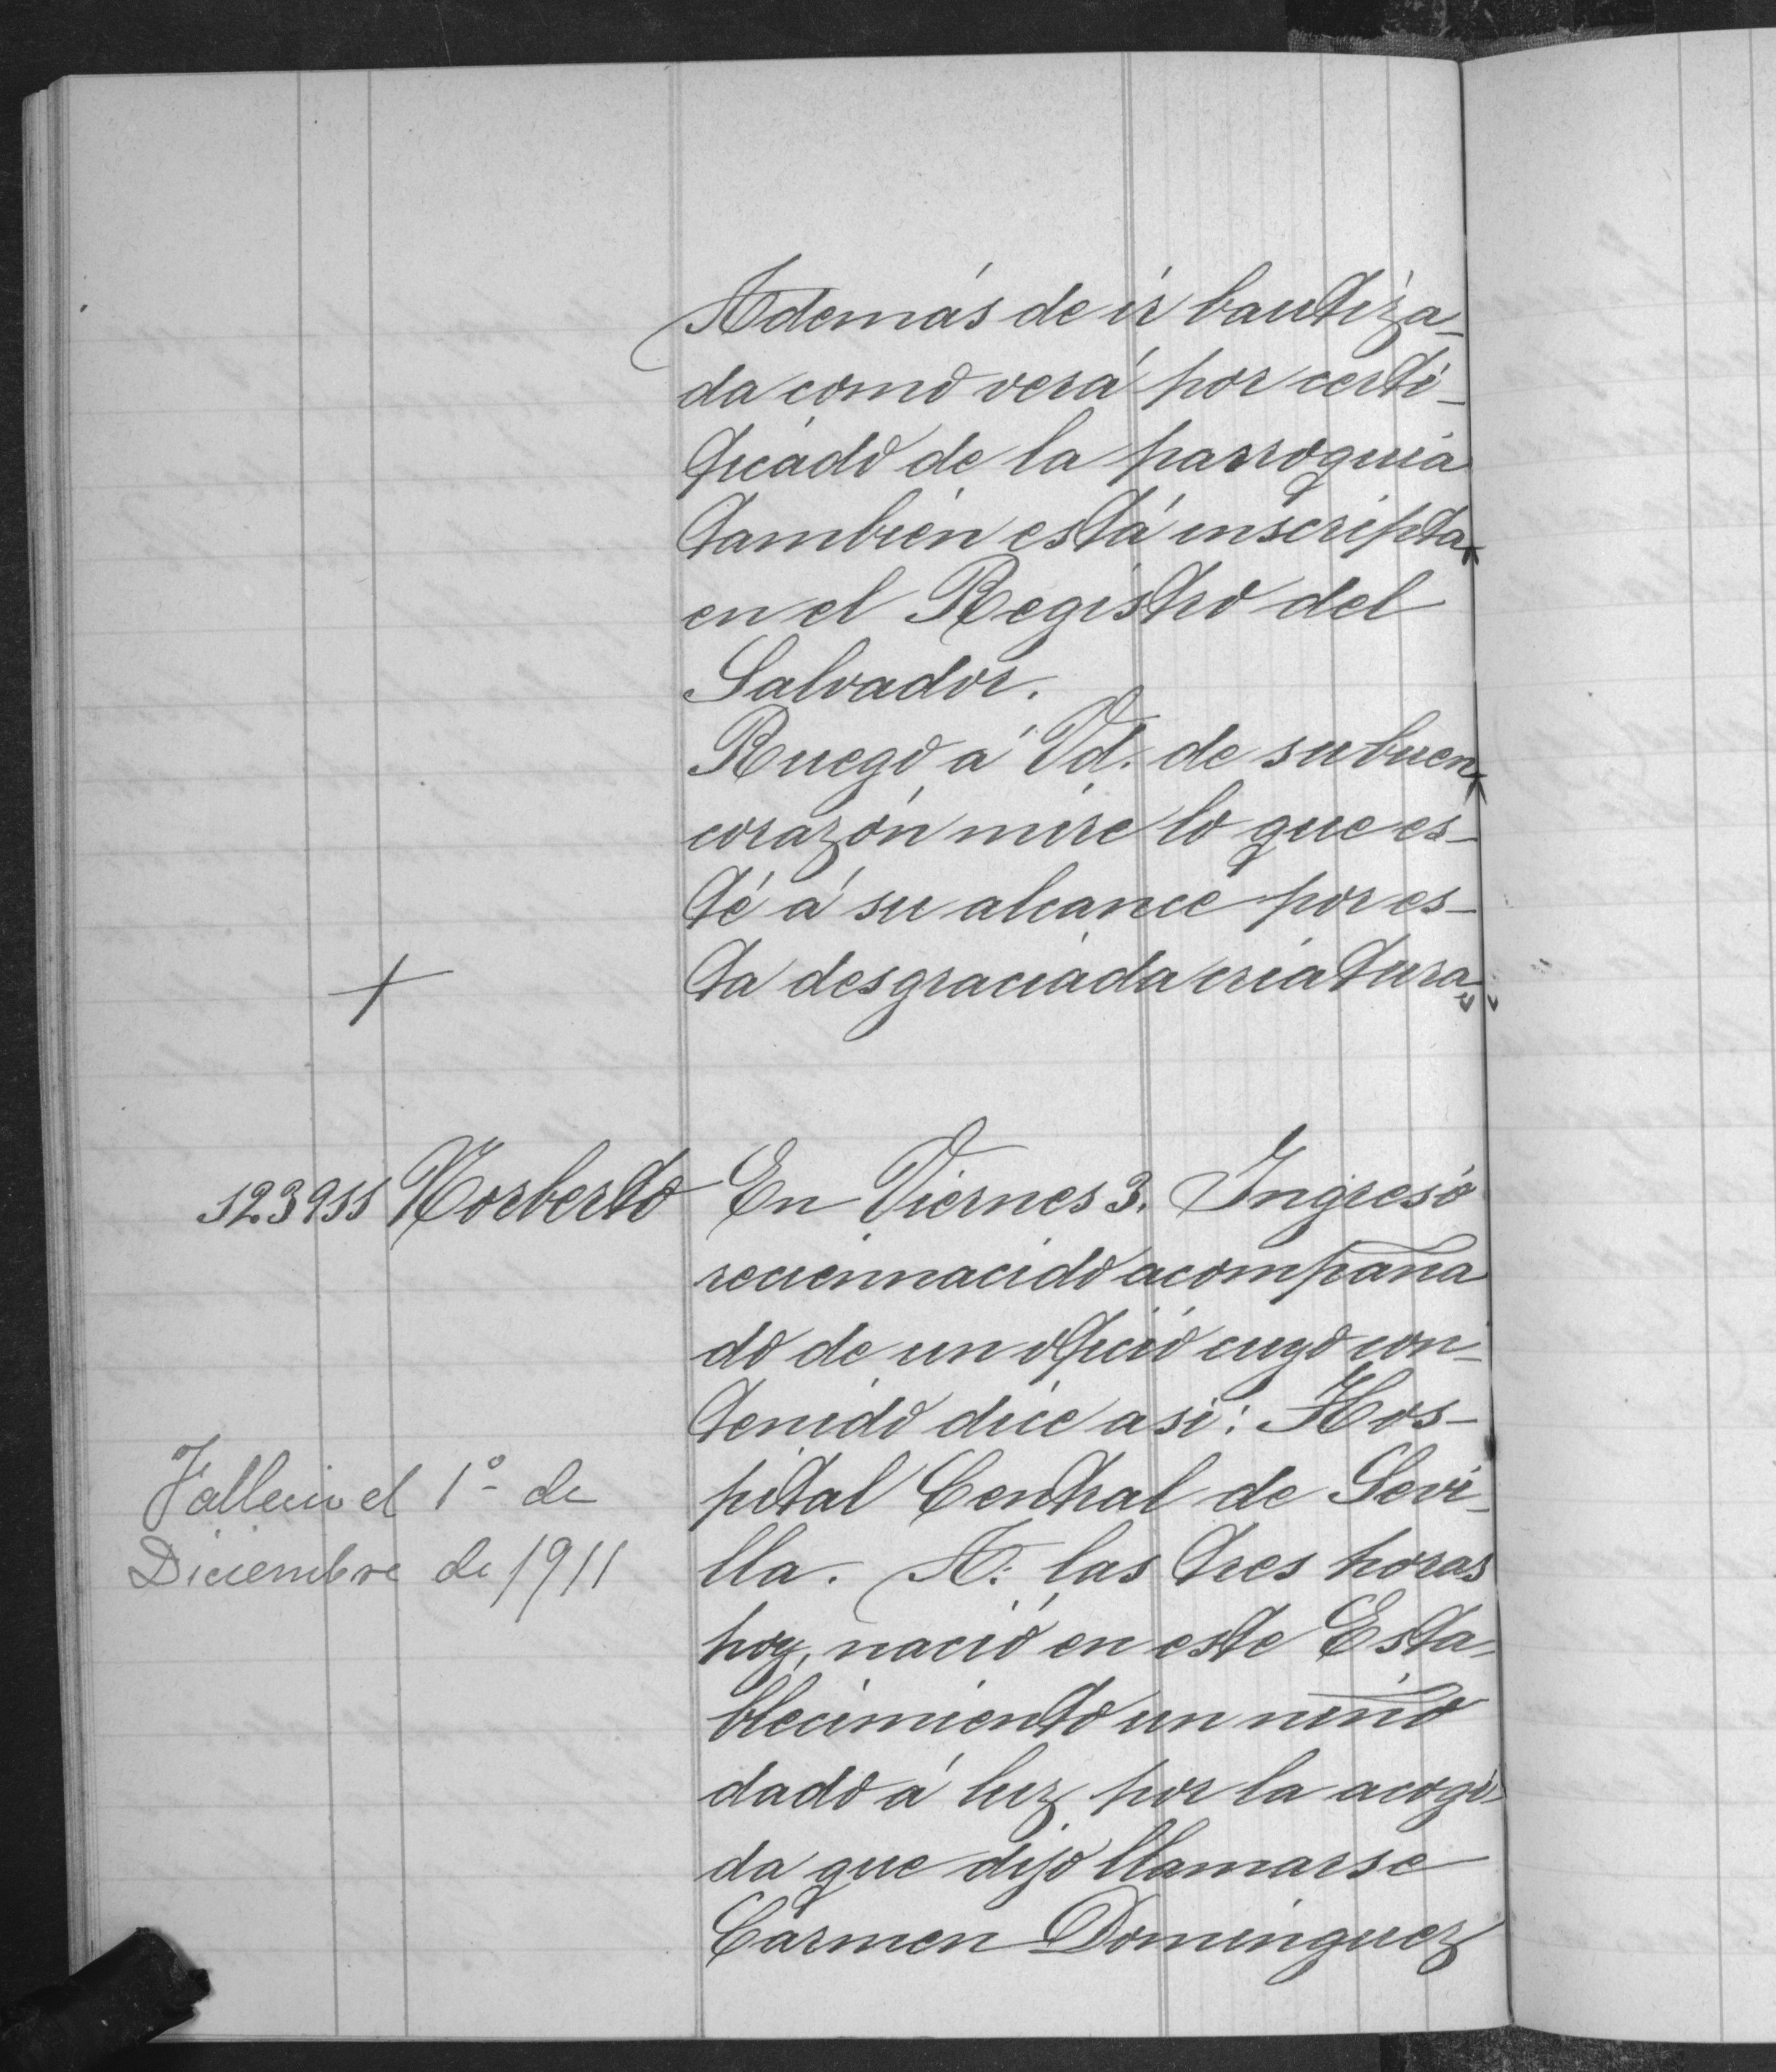 Además de ir bautiza-
da como verá por certi-
ficado de la parroquia
también está inscripta
en el Registro del
Salvador.
Ruego á Vd. de su buen
corazón mire lo que es-
té á su alcance por es-
ta desgraciada criatura"
Norberto En Viernes 3. Ingresó
reciennacido acompaña
do de un oficio cuyo con-
tenido dice asi: Hos-
pital Central de Sevi-
lla. A. las tres horas
hoy, nació en este Esta-
blecimiento un niño
dado á luz por la acogi-
da que dijo llamarse
Carmen Dominguez
Fallecio el 1º de
Diciembre de 1911